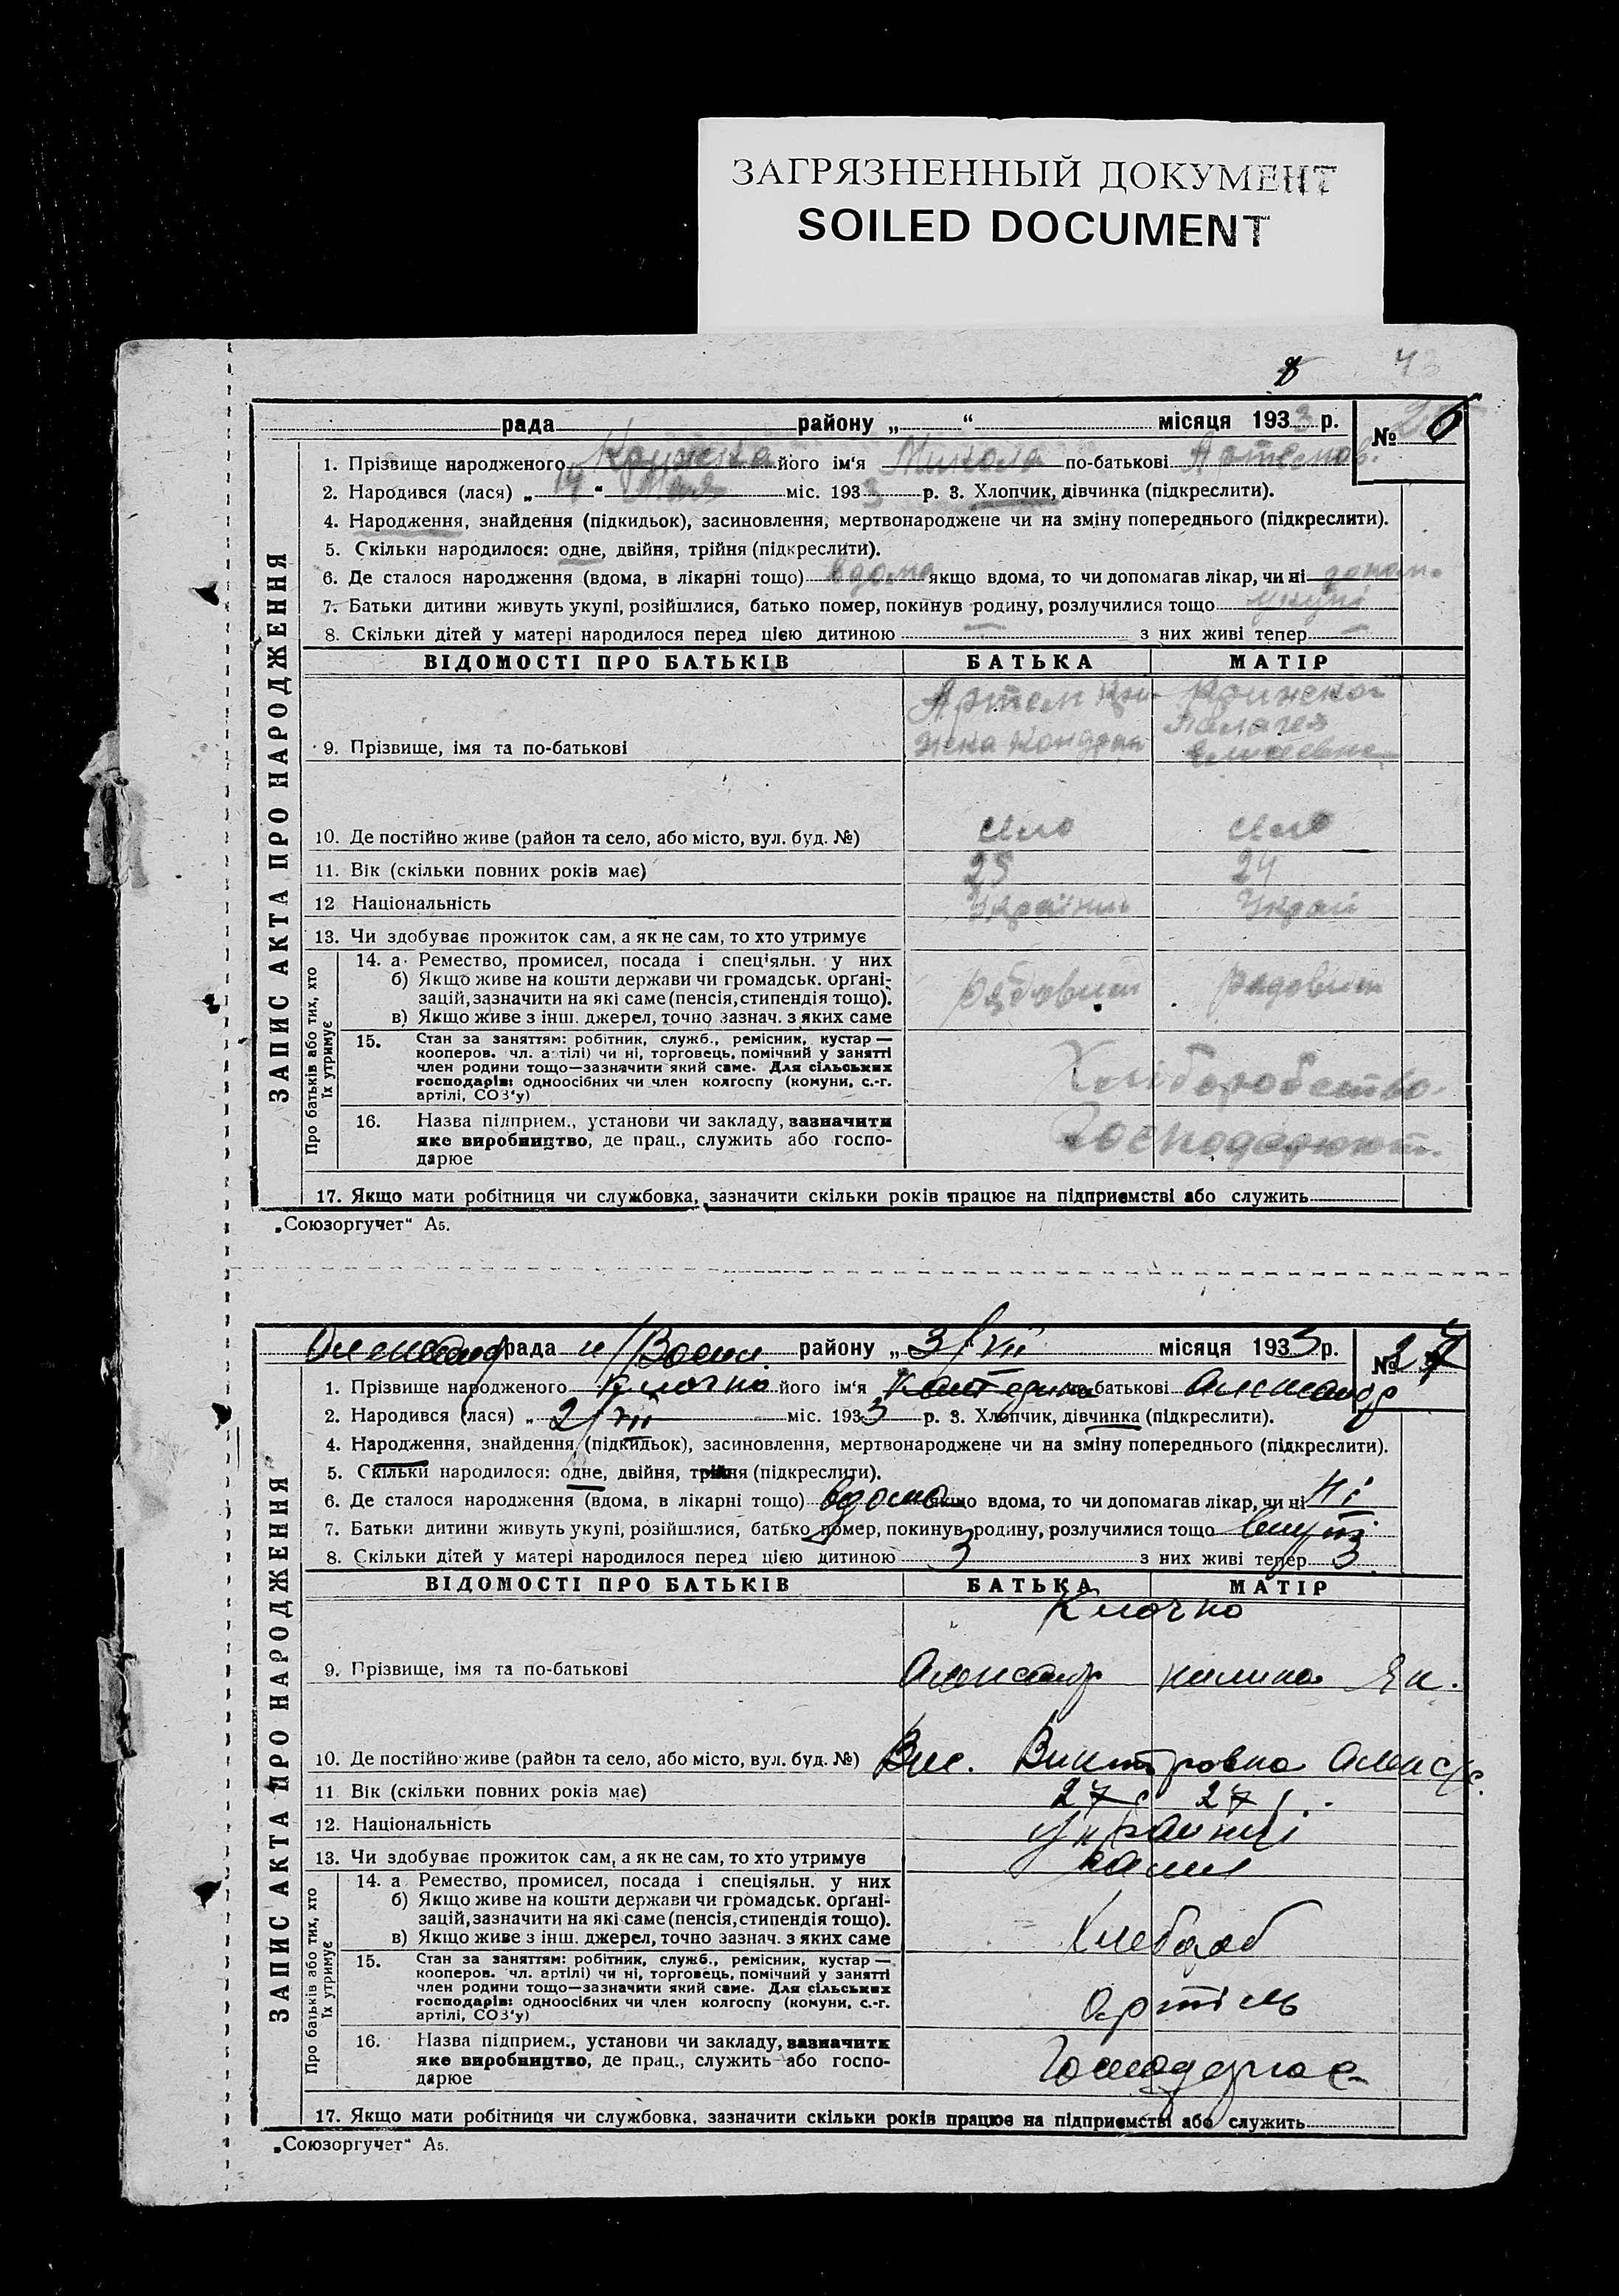 ЗАГРЯЗНЕННЫЙ ДОКУМЕНТ
SOILED DOCUMENT
43
рада району „ “ місяця 1933 р. № 6
1. Прізвище народженого його ім'я Микола по-батькові Артемов.
2. Народився (лася) „ 14 “ Мая міс. 1933 р. 3. Хлопчик, дівчинка (підкреслити).
4. Народження, знайдення (підкидьок), засиновлення, мертвонароджене чи на зміну попереднього (підкреслити).
5. Скільки народилося: одне, двійня, трійня (підкреслити).
6. Де сталося народження (вдома, в лікарні тощо) вдома якщо вдома, то чи допомагав лікар, чи ні
7. Батьки дитини живуть укупі, розійшлися, батько помер, покинув родину, розлучилися тощо укупі
8. Скільки дітей у матері народилося перед цією дитиною — з них живі тепер —
ВІДОМОСТІ ПРО БАТЬКІВ БАТЬКА МАТІР
9. Прізвище, імя та по-батькові Артем Кри-жека Кондрат Палагея Елисеевна
10. Де постійно живе (район та село, або місто, вул. буд. №) село село
11. Вік (скільки повних років має) 25 24
12 Національність Україн Украй
13. Чи здобуває прожиток сам, а як не сам, то хто утримує
14. а Ремество, промисел, посада і спеціяльн. у них
б) Якщо живе на кошти держави чи громадськ. орґані-
зацій, зазначити на які саме (пенсія, стипендія тощо).
в) Якщо живе з інш. джерел, точно зазнач. з яких саме
15. Стан за заняттям: робітник, служб., ремісник, кустар —
кооперов. чл. артілі) чи ні, торговець, помічний у занятті
член родини тощо—зазначити який саме. Для сільських
господарів: одноосібних чи член колгоспу (комуни, с.-г.
артілі, СОЗ'у)
Хліборобство.
16. Назва підприєм., установи чи закладу, зазначити
яке виробництво, де прац., служить або госпо-
дарює
Господарюют.
17. Якщо мати робітниця чи службовка, зазначити скільки років працює на підприємстві або служить
ЗАПИС АКТА ПРО НАРОДЖЕННЯ
Про батьків або тих, хто
їх утримує
„Союзоргучет“ А5.
рада району „ 3/VII місяця 1933 р. № 27
1. Прізвище народженого Клочко його ім'я по-батькові Александр
2. Народився (лася) „ 2/VII міс. 1933 р. 3. Хлопчик, дівчинка (підкреслити).
4. Народження, знайдення (підкидьок), засиновлення, мертвонароджене чи на зміну попереднього (підкреслити).
5. Скільки народилося: одне, двійня, трійня (підкреслити).
6. Де сталося народження (вдома, в лікарні тощо) вдома якщо вдома, то чи допомагав лікар, чи ні ні
7. Батьки дитини живуть укупі, розійшлися, батько помер, покинув родину, розлучилися тощо
8. Скільки дітей у матері народилося перед цією дитиною 3 з них живі тепер 3
ВІДОМОСТІ ПРО БАТЬКІВ БАТЬКА МАТІР
Клочко
9. Прізвище, імя та по-батькові Александр Як.
10. Де постійно живе (район та село, або місто, вул. буд. №)
11 Вік (скільки повних років має) 27 27
12. Національність
13. Чи здобуває прожиток сам, а як не сам, то хто утримує сами
14. а Ремество, промисел, посада і спеціяльн. у них
б) Якщо живе на кошти держави чи громадськ. орґані-
зацій, зазначити на які саме (пенсія, стипендія тощо).
в) Якщо живе з інш. джерел, точно зазнач. з яких саме
Хлебороб
15. Стан за заняттям: робітник, служб., ремісник, кустар —
кооперов. чл. артілі) чи ні, торговець, помічний у занятті
член родини тощо—зазначити який саме. Для сільських
господарів: одноосібних чи член колгоспу (комуни, с.-г.
артілі, СОЗ'у)
Артіль
16. Назва підприєм., установи чи закладу, зазначити
яке виробництво, де прац., служить або госпо-
дарює
17. Якщо мати робітниця чи службовка, зазначити скільки років працює на підприємстві або служить
ЗАПИС АКТА ПРО НАРОДЖЕННЯ
Про батьків або тих, хто
їх утримує
„Союзоргучет“ А5.